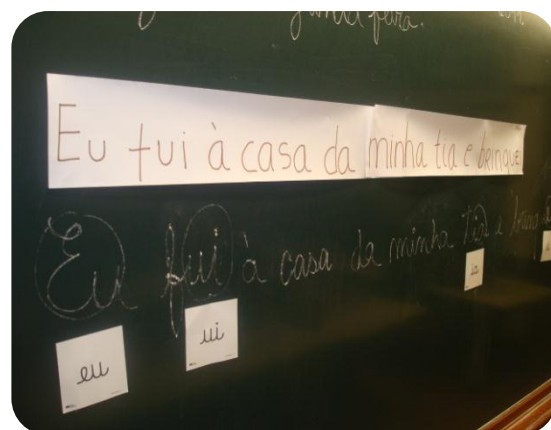 feira.
Eu fui à casa da minha tia e brinquei
Eu fui à casa da minha tia e
ia
eu
ui